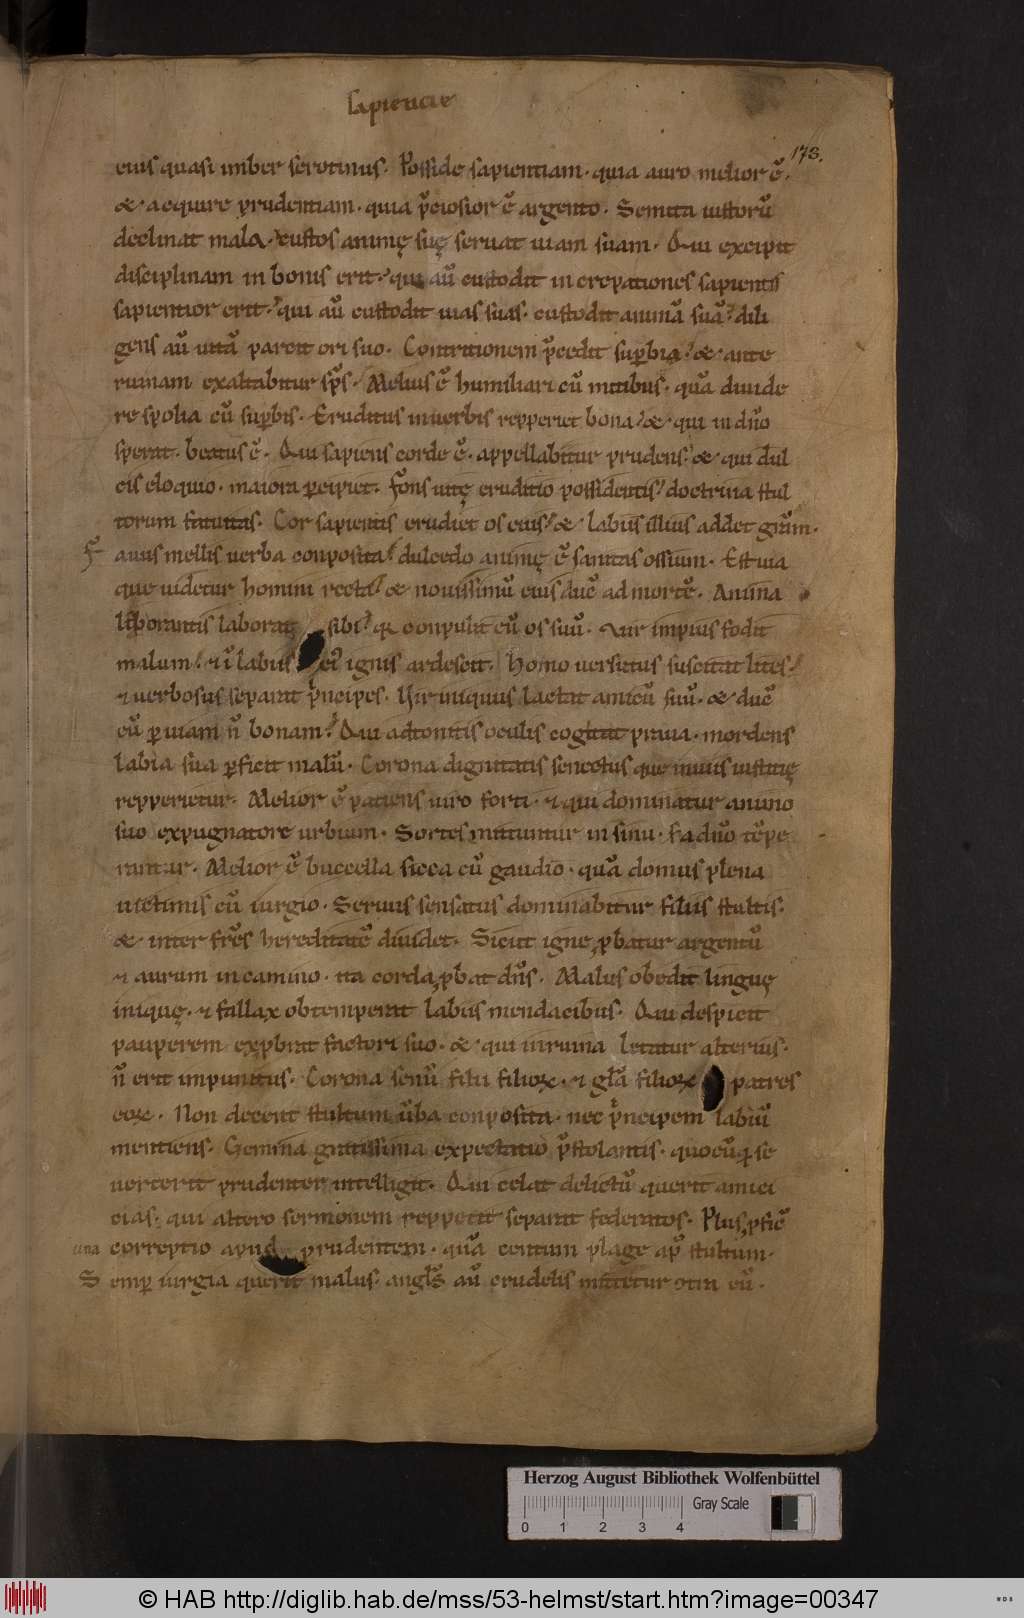 sapientiae
173.
eius quasi imber serotinus. Posside sapientiam. quia auro melior ē.
& acquire prudentiam. quia p̄ciosior ē argento. Semita iustorū
declinat mala. custos animę suę seruat uiam suam. Qui excipit
disciplinam in bonis erit. qui aū custodit increpationes sapientis
sapientior erit. qui aū custodit uias suas. custodit animā suā. dili
gens aū uitā parcit ori suo. Contritionem p̄cedit sup̄bia. & ante
ruinam exaltabitur sp̄s. Melius ē humiliari cū mitibus. quā diuide
re spolia cū sup̄bis. Eruditus in uerbis repperiet bona. & qui in dn̄o
sperat. beatus ē. Qui sapiens corde ē. appellabitur prudens. & qui dul
cis eloquio. maiora p̄cipiet. Fons uitę eruditio possidentis. doctrina stul
torum fatuitas. Cor sapientis erudiet os eius. & labiis illius addet grām.
F auus mellis uerba conposita. dulcedo animę ē sanitas ossium. Est uia
que uidetur homini recta. & nouissimū eius ducē ad mortē. Anima
laborantis laborat sibi. q̄ conpulit eū os suū. Vir impius fodit
malum. & ī labiis ei' ignis ardescit. Homo uersutus suscitat lites.
& uerbosus separat p̄ncipes. Vir iniquus lactat amicū suū. & ducē
eū p̄ uiam n̄ bonam. Qui adtonitis oculis cogitat praua. mordens
labia sua p̄ficit malū. Corona dignitatis senectus que in uiis iustitię
repperietur. Melior ē patiens uiro forti. & qui dominatur animo
suo expugnatore urbium. Sortes mittuntur in sinu. s; a dn̄o tēpe
rantur. Melior ē buccella sicca cū gaudio. quā domus plena
uictimis cū iurgio. Seruus sensatus dominabitur filiis stultis.
& inter frēs hereditatē diuidet. Sicut igne p̄batur argentū
& aurum in camino. ita corda p̄bat dn̄s. Malus obedit linguę
iniquę. & fallax obtemperat labiis mendacibus. Qui despicit
pauperem exp̄brat factori suo. & qui in ruina letatur alterius.
n̄ erit impunitus. Corona senū filii filioꝝ. & glā filioꝝ patres
eoꝝ. Non decent stultum ūba conposita. nec p̄ncipem labiū
mentiens. Gemma gratissima expectatio p̄stolantis. quocūq; se
uerterit prudenter intelligit. Qui celat delictū querit amici
cias. qui altero sermonem reppetit separat federatos. Plus p̄ficē
una correptio apud prudentem. quā centum plage ap̄ stultum.
S emp̄ iurgia querit malus. angl̄s aū crudelis mittetur ɔtra eū.
Herzog August Bibliothek Wolfenbüttel
Gray Scale
0 1 2 3 4
© HAB http://diglib.hab.de/mss/53-helmst/start.htm?image=00347